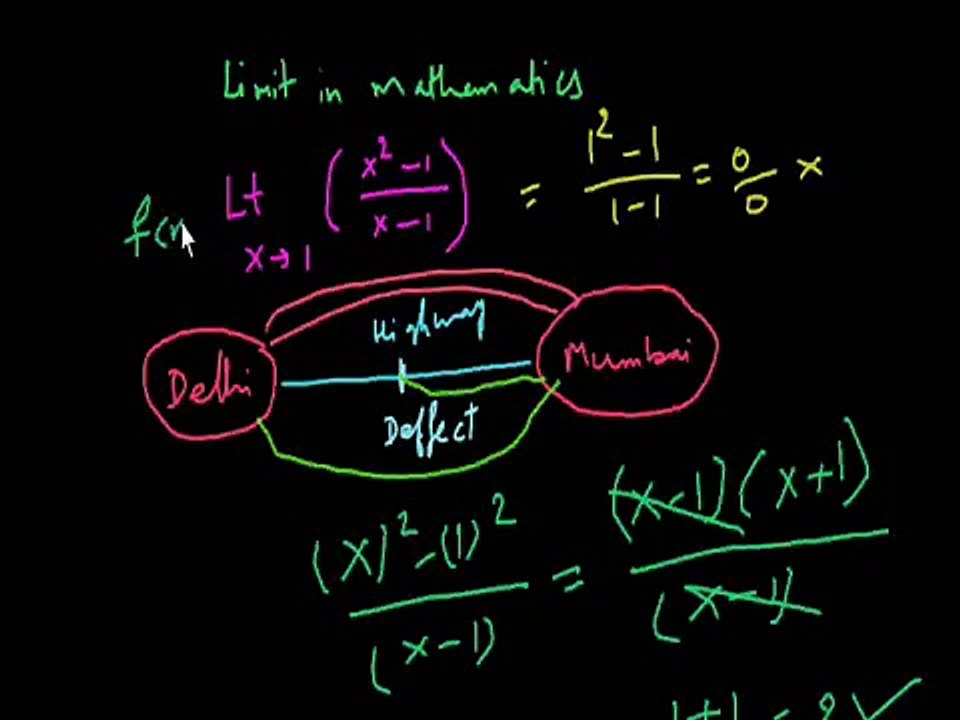 Limit in mathematics
f(x Lt x→1 (x² - 1 / x - 1) = 1² - 1 / 1 - 1 = 0/0 ×
Highway
Delhi Mumbai
Deffect
(x)² - (1)² / (x - 1) = (x - 1)(x + 1) / (x - 1)
1 + 1 = 2 ✓